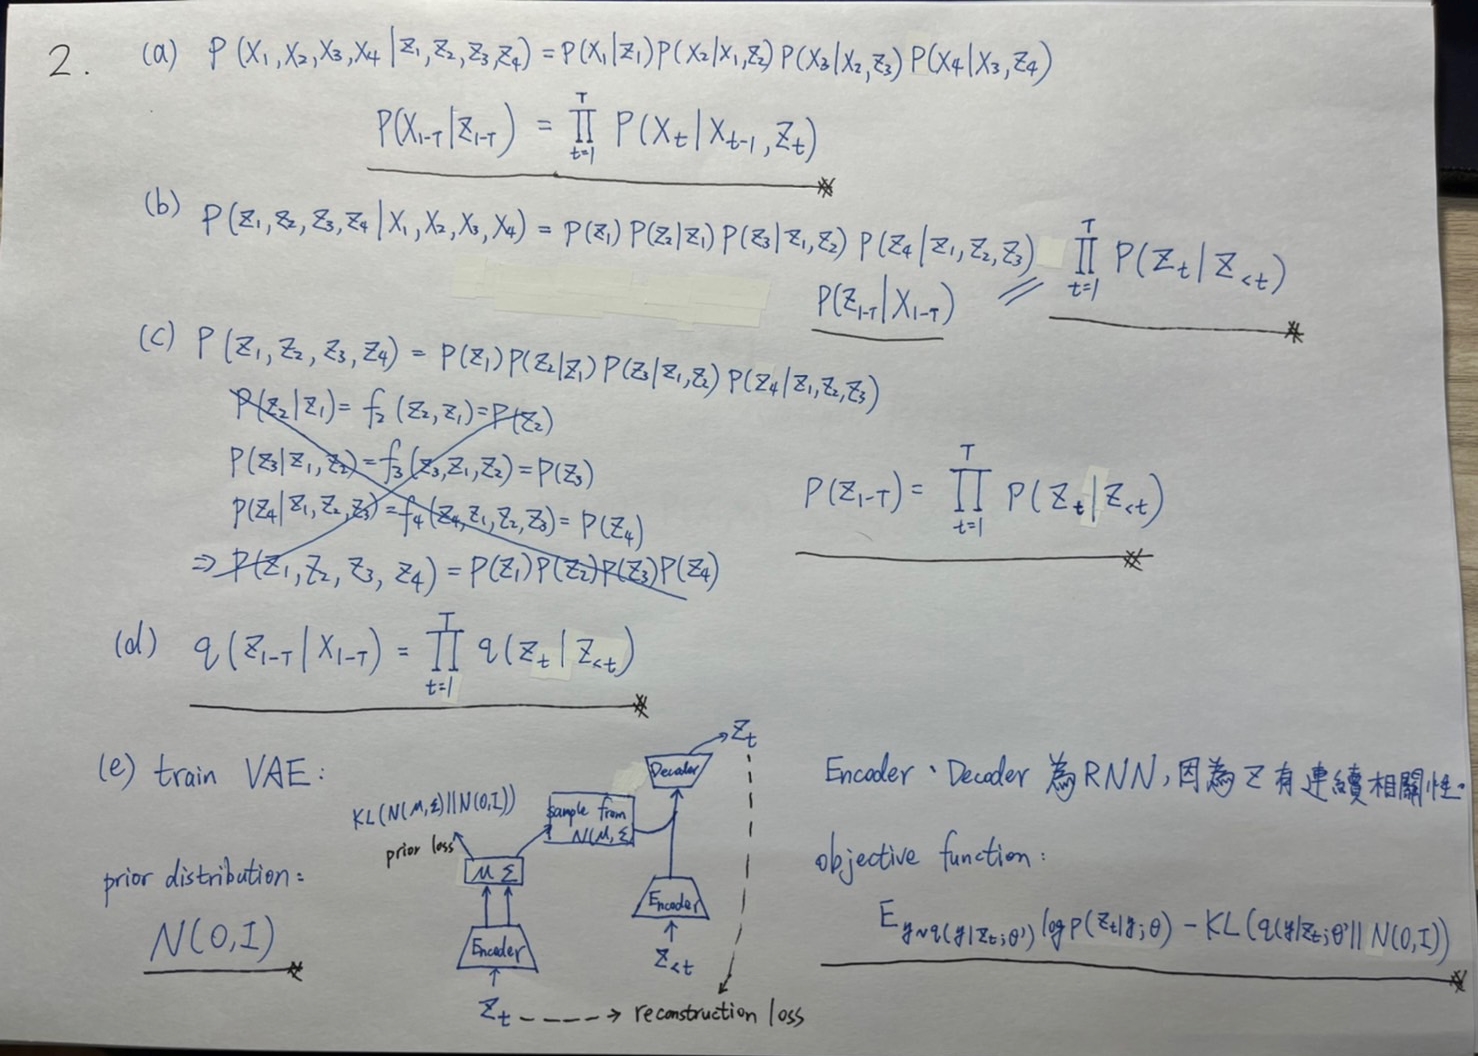 2. (a) P(X₁,X₂,X₃,X₄|Z₁,Z₂,Z₃,Z₄) = P(X₁|Z₁)P(X₂|X₁,Z₂)P(X₃|X₂,Z₃)P(X₄|X₃,Z₄)
P(X₁₋T|Z₁₋T) = ∏ₜ₌₁ᵀ P(Xₜ|Xₜ₋₁,Zₜ)
(b) P(Z₁,Z₂,Z₃,Z₄|X₁,X₂,X₃,X₄) = P(Z₁)P(Z₂|Z₁)P(Z₃|Z₁,Z₂)P(Z₄|Z₁,Z₂,Z₃)
P(Z₁₋T|X₁₋T) = ∏ₜ₌₁ᵀ P(Zₜ|Z<ₜ)
(c) P(Z₁,Z₂,Z₃,Z₄) = P(Z₁)P(Z₂|Z₁)P(Z₃|Z₁,Z₂)P(Z₄|Z₁,Z₂,Z₃)
P(Z₂|Z₁) = f₂(Z₂,Z₁) = P(Z₂)
P(Z₃|Z₁,Z₂) = f₃(Z₃,Z₁,Z₂) = P(Z₃)
P(Z₄|Z₁,Z₂,Z₃) = f₄(Z₄,Z₁,Z₂,Z₃) = P(Z₄)
⇒ P(Z₁,Z₂,Z₃,Z₄) = P(Z₁)P(Z₂)P(Z₃)P(Z₄)
P(Z₁₋T) = ∏ₜ₌₁ᵀ P(Zₜ|Z<ₜ)
(d) q(Z₁₋T|X₁₋T) = ∏ₜ₌₁ᵀ q(Zₜ|Z<ₜ)
(e) train VAE:
prior distribution:
N(0,I)
KL(N(μ,Σ)||N(0,I))
prior loss
μ Σ
Encoder
Zₜ
sample from
N(μ,Σ)
Zₜ
Decoder
Encoder
Z<ₜ
reconstruction loss
Encoder、Decoder 為RNN,因為Z有連續相關性.
objective function:
E y~q(y|Zₜ;θ') log p(Zₜ|y;θ) - KL(q(y|Zₜ;θ'||N(0,I))